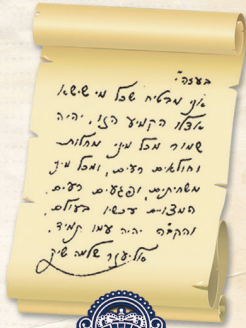 בעזהי"ת
אני מבטיח שכל מי שישא
אצלו הקמיע הזו, יהיה
שמור מכל מיני מחלות
וחולאים רעים, ומכל מיני
משחיתים, ופגעים רעים,
המצויים עכשיו בעולם.
והקב"ה יהיה עמו תמיד.
אליעזר שלמה שיק